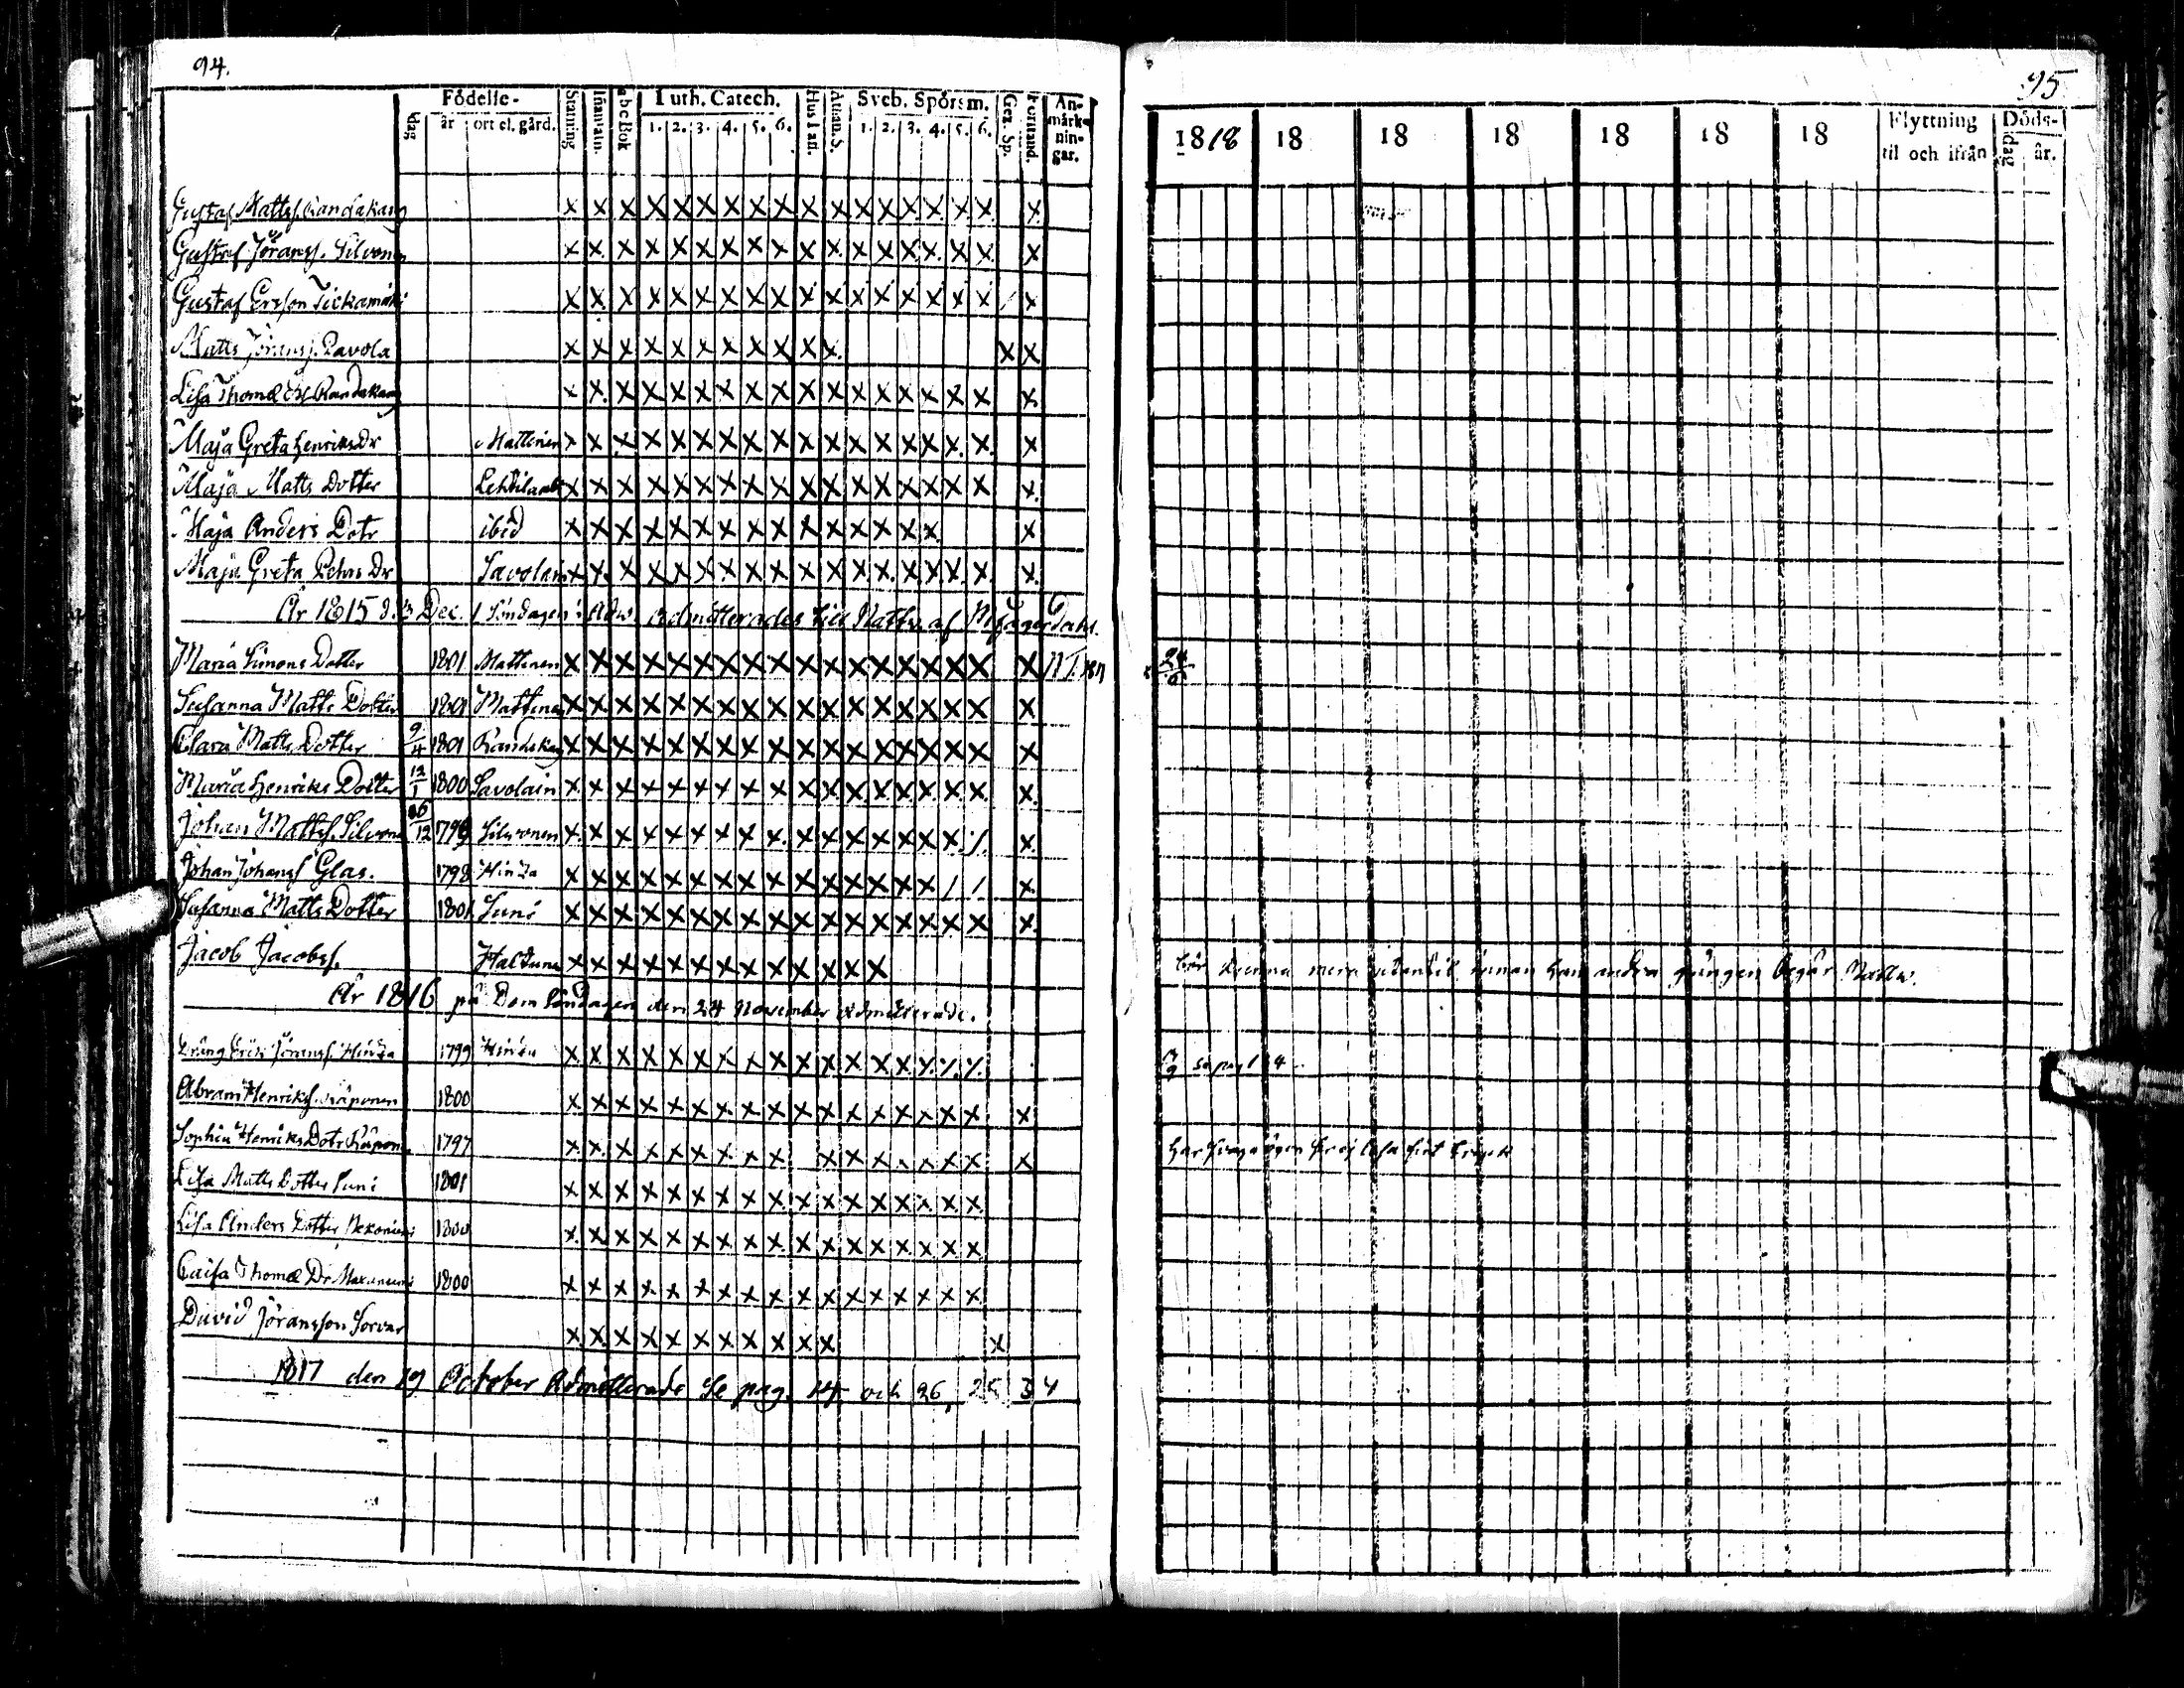 94.
Födelse-
dag
år
ort el. gård.
Stafning
Innanl.
abcBok
Luth. Catech.
1. 2. 3. 4. 5. 6.
Hus Tafl.
Athan. S.
Sveb. Spörsm.
1. 2. 3. 4. 5. 6.
Gez. Sp.
Förstånd.
An-
märk-
nin-
gar.
Gustaf Mattss. Randakang x x x x x x x x x x x x x x x x x x
Gustaf Jöranss. Silvonen x x x x x x x x x x x x x x x x x x
Gustaf Ersson Tickamäki x x x x x x x x x x x x x x x x x / x
Matts Jöranss. Pavola x x x x x x x x x x x x x
Lisa Thomæ Dr Randakang x x x x x x x x x x x x x x x x x x
Maja Greta Henriks Dr Mattinen x x x x x x x x x x x x x x x x x x
Maja Matts Dotter x x x x x x x x x x x x x x x x x x
Maja Anders Dotr ibid x x x x x x x x x x x x x x x x
Maja Greta Pehrs Dr Savolain x x x x x x x x x x x x x x x x x x
År 1815 d. 3 Dec. 1 Söndagen i Adw. admitterades till Nattv. af
Maria Simons Dotter 1801 Mattinen x x x x x x x x x x x x x x x x x x
Susanna Matts Dotter 1801 Mattinen x x x x x x x x x x x x x x x x x x
Clara Matts Dotter 9/4 1801 Randakang x x x x x x x x x x x x x x x x x x
Maria Henriks Dotter 12/1 1800 Savolain x x x x x x x x x x x x x x x x x x
Johan Mattss. Silvonen 26/12 1799 Silvonen x x x x x x x x x x x x x x x x x
Johan Johanss Glas. 1798 Hinza x x x x x x x x x x x x x x x / / x
Susanna Matts Dotter 1801 Suni x x x x x x x x x x x x x x x x x x
Jacob Jacobss. x x x x x x x x x x x x x
År 1816 på Dom Söndagen den 24 November admitterade.
Dräng Erik Jöranss. Hinza 1799 Hinza x x x x x x x x x x x x x x
Abram Henrikss. Räponen 1800 x x x x x x x x x x x x x x x x x x
Sophia Henriks Dotr Räponen 1797 x x x x x x x x x x x x x x x x x
Lisa Matts Dotter Suni 1801 x x x x x x x x x x x x x x x x x
Lisa Anders Dotter 1800 x x x x x x x x x x x x x x x x x
Caisa Thomæ Dr 1800 x x x x x x x x x x x x x x x x x
David Jöransson Sorvar x x x x x x x x x x x x
1817 den 19 October Admitterade Se pag. och 26, 25 34
95
1818 18 18 18 18 18 18
Flyttning
til och ifrån
Döds-
dag
år.
24/6
bör kunna mera utantil innan han andra gången begår Nattv.